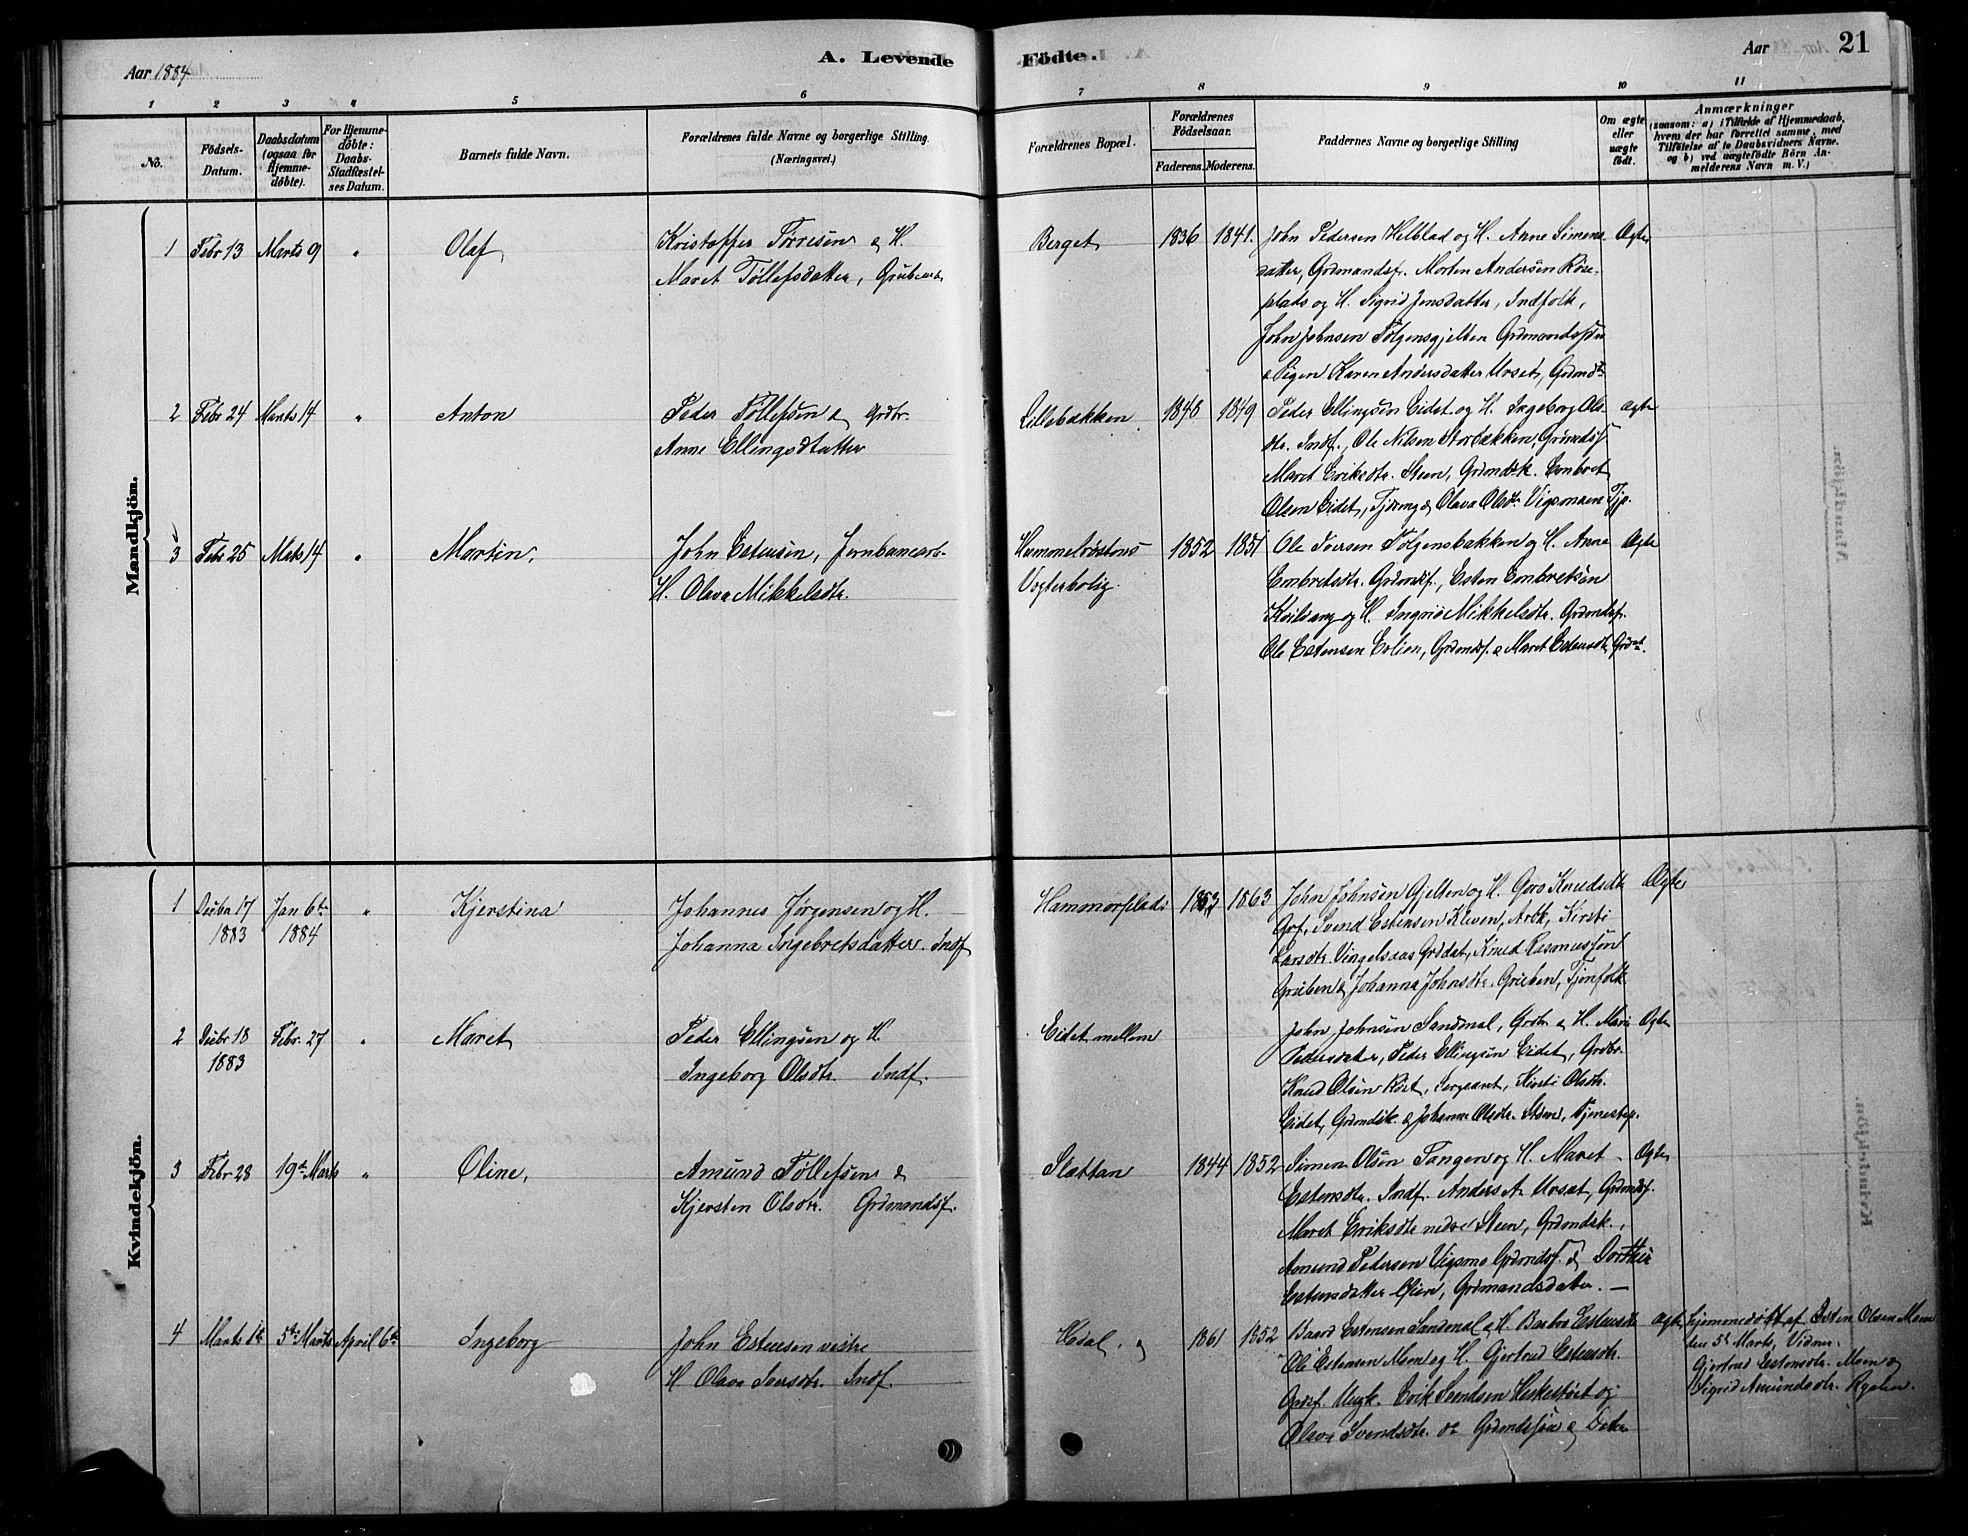 Aar 1884
A. Levende
Födte.
Aar
21
1
2
3
4
5
6
7
8
9
10
11
No.
Födsels-
Datum.
Daabsdatum
(ogsaa for
Hjemme-
döbte).
For Hjemme-
döbte:
Daabs-
Stadfæstel-
ses Datum.
Barnets fulde Navn.
Forældrenes fulde Navne og borgerlige Stilling.
(Næringsvei.)
Forældrenes Bopæl.
Forældrenes
Födselsaar.
Faderens.
Moderens.
Faddernes Navne og borgerlige Stilling
Om ægte
eller
uægte
födt.
Anmærkninger
(saasom: a) i Tilfælde af Hjemmedaab,
hvem der har forrettet samme, med
Tilföielse af to Daabsvidners Navne.
og b) ved uægtefödte Börn An-
melderens Navn m. V.)
Mandkjön.
1 Febr 13 Marts 9 " Olaf
Kristoffer Törresen & H.
Maret Töllefsdatter,
Berget 1836 1841.
John Pedersen Helblad og H. Anne Simens
datter, Grdmandsf. Morten Andersen Röse-
plads og H. Sigrid Jonsdatter, Indfolk,
John Johnsen Tölgensgjelten Grdmandssön
& Pigen Karen Andersdatter Urset, Grdmdtr
Ægte
2 Febr 24 Marts 14 " Anton
Peder Töllefsen & Grdbr.
Anne Ellingsdatter
Lillebakken 1848 1849
Peder Ellingsen Eidet og H. Ingeborg Ols-
dtr. Indf., Ole Nilsen Storbækken, Grdmdsf
Maret Eriksdtr. Steen, Grdmdsk. Embret
Olsen Eidet, Tjdreng & Olava Olsdtr Vigsmoen Tjp.
ægte
3 Febr 25 Marts 14 " Martin,
John Estensen, Jernbanearb.
H. Olava Mikkelsdtr.
Hummelvöstens
Vogterbolig. 1852 1851
Ole Iversen Tölgensbakken og H. Anne
Embretsdtr. Grdmdsf., Esten Embretsen
Kvilvang og H. Ingrid Mikkelsdtr. Grdmdsf.
Ole Estensen Eolien, Grdmdsf. & Maret Estensdtr.
Ægte
Kvindekjön.
1 Decbr 17
1883
Jan 6te
1884 " Kjerstina
Johannes Jörgensen og H.
Johanna Ingebretsdatter. Indf
Hammerplads 1853 1863
John Johnsen Gjelten og H. Goro Knudsdtr
Grf. Svend Estensen Kleven, Arbk, Kirsti
Larsdtr. Vingelsaas Grddat, Knud Rasmussen
Gruben & Johanna Johnsdtr. Gruben, Tjenfolk
Ægte
2 Decbr 18
1883
Febr. 27 " Maret
Peder Ellingsen og H.
Ingeborg Olsdtr. Indf.
Eidet mellem
John Johnsen Sandmal, Grdbr & H. Marie
Pedersdatter, Peder Ellingsen Eidet, Grdbr.
Knud Olsen Röst, Sergeant, Kirsti Olsdtr.
Eidet, Grdmdsk. & Johanne Olsdtr. Steen, Tjenestep.
Ægte
3 Febr 28 19de Marts " Oline,
Amund Töllefsen &
Kjersten Olsdtr. Grdmandsf.
Slettan 1844 1852
Simen Olsen Tangen og H. Maret
Estensdtr. Indf. Anders A. Urset, Grdmdsf.
Maret Eriksdtr nedre Steen, Grdmdsk.,
Amund Pedersen Vigsmo Grdmdsf. & Dorthea
Estensdatter Öien, Grdmandsdatter. —
Ægte
4 Marts 1te 5te Marts April 6te Ingeborg
John Estensen vestre
H Olava Iversdtr. Indf.
Hodal. 1861 1852
Baard Estensen Sandmal & H Barbro Estensdtr
Ole Estensen Moen og H. Gjertrud Estensdtr.
Grdsf. Ungk. Erik Svendsen Heskestöet og
Olava Svendsdtr. do Grdmdssön & Datter
Ægte
hjemmedöbt af Osten Olsen Moen
den 5te Marts, Vidner.
Gjertrud Estensdtr. Moen og
Sigrid Amundsdtr. Ryslien.